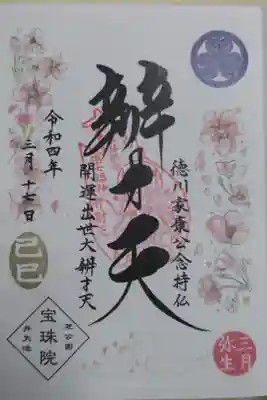 徳川家康公念持仏
辨才天
開運出世大辨才天
令和四年
三月十七日
己巳
芝公園
宝珠院
弁天池
三月
弥生